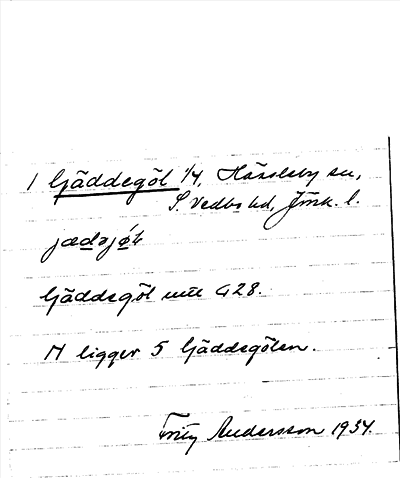 1 Gäddegöl 1/4, Hässleby sn,
S. Vedbo hd, Jönk. l.
jædəjø̀l
Gäddegöl mtl G28.
N ligger S Gäddegölen.
Fritz Andersson 1934.